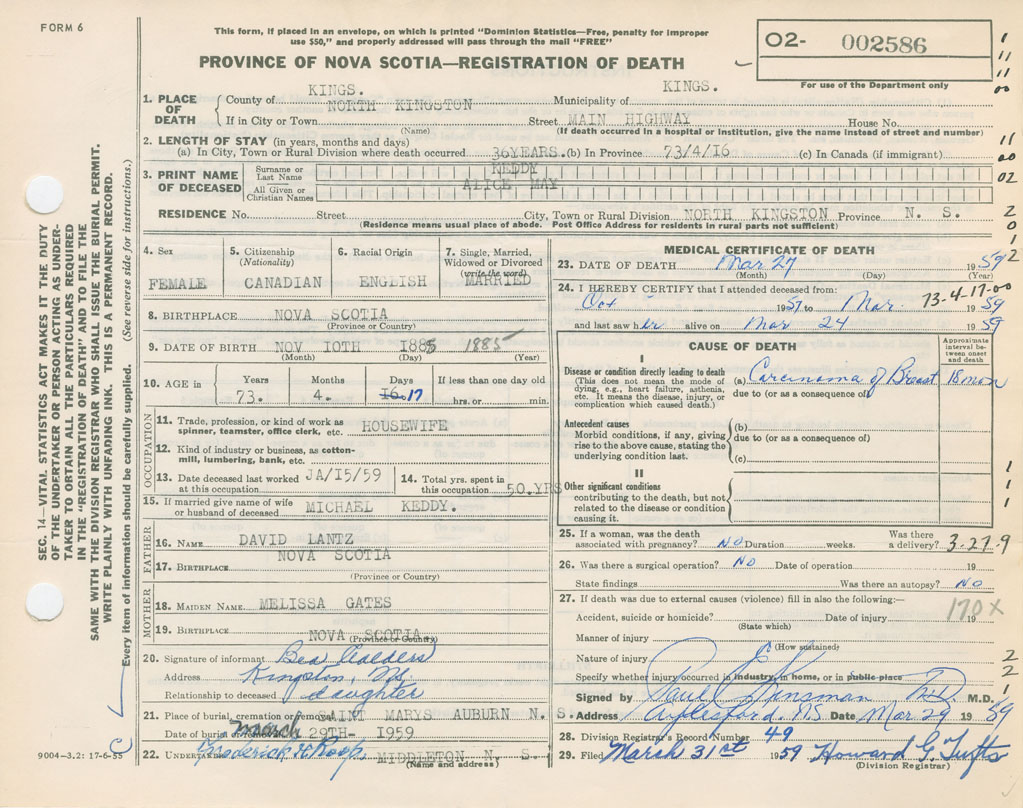 FORM 6
This form, if placed in an envelope, on which is printed "Dominion Statistics—Free, penalty for improper
use $50," and properly addressed will pass through the mail "FREE"
O2- 002586
For use of the Department only
PROVINCE OF NOVA SCOTIA—REGISTRATION OF DEATH
SEC. 14—VITAL STATISTICS ACT MAKES IT THE DUTY
OF THE UNDERTAKER OR PERSON ACTING AS UNDER-
TAKER TO OBTAIN ALL THE PARTICULARS REQUIRED
IN THE "REGISTRATION OF DEATH" AND TO FILE THE
SAME WITH THE DIVISION REGISTRAR WHO SHALL ISSUE THE BURIAL PERMIT.
WRITE PLAINLY WITH UNFADING INK. THIS IS A PERMANENT RECORD.
Every item of information should be carefully supplied. (See reverse side for instructions.)
1. PLACE OF DEATH
County of KINGS. Municipality of KINGS.
If in City or Town NORTH KINGSTON Street MAIN HIGHWAY House No.
(Name) (If death occurred in a hospital or institution, give the name instead of street and number)
2. LENGTH OF STAY (in years, months and days)
(a) In City, Town or Rural Division where death occurred 36YEARS. (b) In Province 73/4/16 (c) In Canada (if immigrant)
3. PRINT NAME OF DECEASED
Surname or Last Name KEDDY
All Given or Christian Names ALICE MAY
RESIDENCE No. Street City, Town or Rural Division NORTH KINGSTON Province N. S.
(Residence means usual place of abode. Post Office Address for residents in rural parts not sufficient)
4. Sex FEMALE
5. Citizenship (Nationality) CANADIAN
6. Racial Origin ENGLISH
7. Single, Married, Widowed or Divorced (write the word) MARRIED
8. BIRTHPLACE NOVA SCOTIA
(Province or Country)
9. DATE OF BIRTH NOV 10TH 1885 1885
(Month) (Day) (Year)
10. AGE in Years Months Days If less than one day old
73. 4. 16. 17 hrs. or min.
OCCUPATION
11. Trade, profession, or kind of work as
spinner, teamster, office clerk, etc. HOUSEWIFE
12. Kind of industry or business, as cotton-
mill, lumbering, bank, etc.
13. Date deceased last worked at this occupation JA/15/59
14. Total yrs. spent in this occupation 50.YRS
15. If married give name of wife
or husband of deceased MICHAEL KEDDY.
FATHER
16. NAME DAVID LANTZ
17. BIRTHPLACE NOVA SCOTIA
(Province or Country)
MOTHER
18. MAIDEN NAME MELISSA GATES
19. BIRTHPLACE NOVA SCOTIA
(Province or Country)
20. Signature of informant Bea
Address Kingston, NS.
Relationship to deceased daughter
21. Place of burial, cremation or removal SAINT MARYS AUBURN N. S.
Date of burial or removal March 29TH- 1959
22. UNDERTAKER Roderick MIDDLETON N. S.
(Name and address)
9004—3.2: 17-6-55
MEDICAL CERTIFICATE OF DEATH
23. DATE OF DEATH Mar 27 1959
(Month) (Day) (Year)
24. I HEREBY CERTIFY that I attended deceased from: 73-4-17-00
Oct 1957 to Mar. 1959
and last saw her alive on Mar 24 1959
CAUSE OF DEATH
Approximate interval between onset and death
I
Disease or condition directly leading to death
(This does not mean the mode of
dying, e.g., heart failure, asthenia,
etc. It means the disease, injury, or
complication which caused death.)
(a) Carcinoma of Breast 18 mon
due to (or as a consequence of)
Antecedent causes
Morbid conditions, if any, giving
rise to the above cause, stating the
underlying condition last.
(b)
due to (or as a consequence of)
(c)
II
Other significant conditions
contributing to the death, but not
related to the disease or condition
causing it.
25. If a woman, was the death
associated with pregnancy? NO Duration weeks. Was there a delivery? 3-27-9
26. Was there a surgical operation? NO Date of operation 19
State findings Was there an autopsy? No
27. If death was due to external causes (violence) fill in also the following:—
170X
Accident, suicide or homicide? Date of injury 19
(State which)
Manner of injury
(How sustained)
Nature of injury
Specify whether injury occurred in industry, in home, or in public place
Signed by Paul E Kinsman M.D. M.D.
Address Aylesford, N.S. Date Mar 29 1959
28. Division Registrar's Record Number 49
29. Filed March 31st 1959 Howard G. Tufts
(Division Registrar)